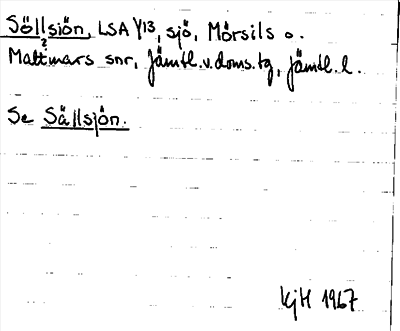 Söllsjön, LSA Y13, sjö, Mörsils o.
Mattmars snr, Jämtl. v. doms. tg, Jämtl. l.
Se Sällsjön.
KjH 1967